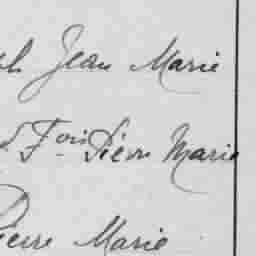 ph Jean Marie
d Fois Pierre Marie
Pierre Marie